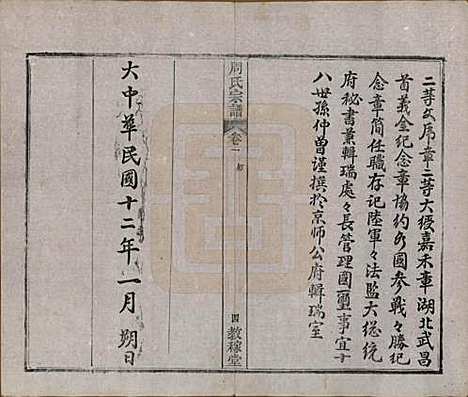 二等文序章二等大綬嘉禾章湖北武昌
首義金紀念章協約各國參戰々勝紀
念章簡任職存記陸軍々法監大總統
府秘書兼輯瑞處々長管理國璽事宜十
八世孫仲曾謹撰於京師公府輯瑞室
周氏宗譜
卷一
四
教稼堂
大中華民國十二年一月朔日